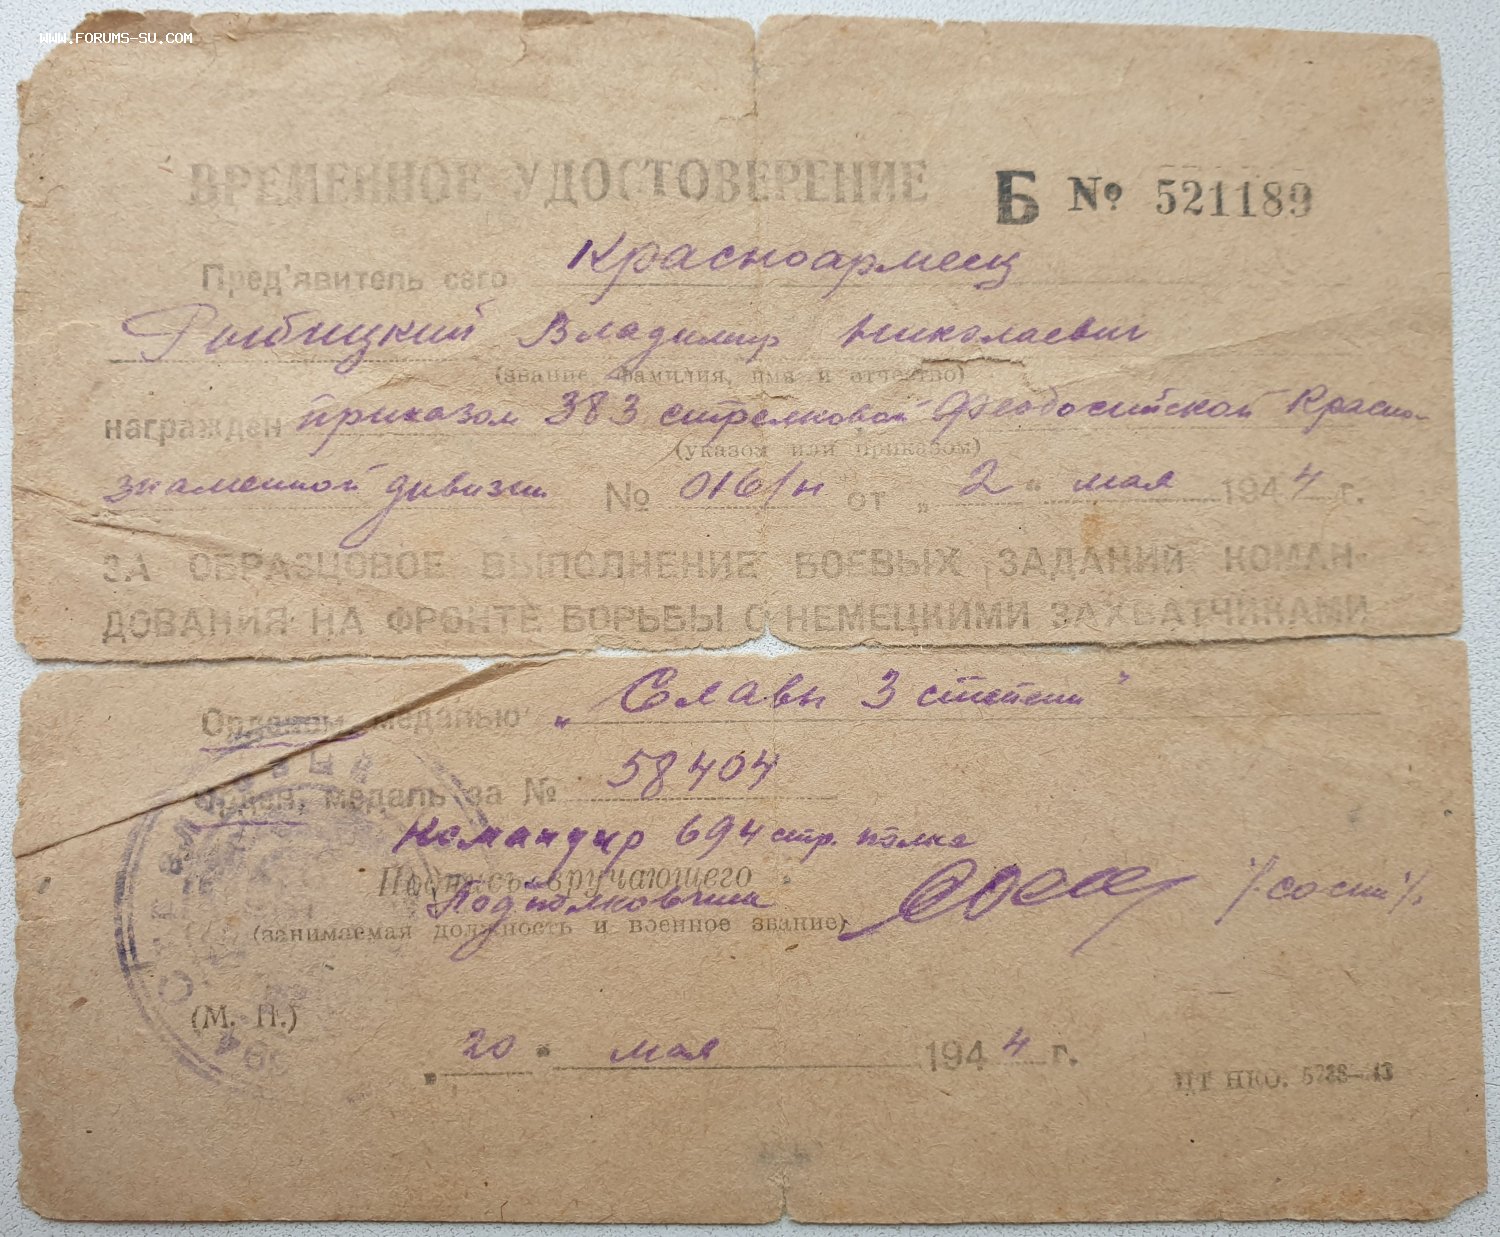 WWW.FORUMS-SU.COM
ВРЕМЕННОЕ УДОСТОВЕРЕНИЕ Б № 521189
Пред'явитель сего Красноармеец
Рыбицкий Владимир Николаевич
(звание, фамилия, имя и отчество)
награжден приказом 383 стрелковой Феодосийской Красно-
(указом или приказом)
знаменной дивизии № 016/н от „ 2 " мая 1944 г.
ЗА ОБРАЗЦОВОЕ ВЫПОЛНЕНИЕ БОЕВЫХ ЗАДАНИЙ КОМАН-
ДОВАНИЯ НА ФРОНТЕ БОРЬБЫ С НЕМЕЦКИМИ ЗАХВАТЧИКАМИ
Орденом, медалью „ Славы 3 степени"
орден, медаль за № 58404
Командир 694 стр. полка
Подпись вручающего
Подполковник
(занимаемая должность и военное звание)
(М. П.)
„ 20 " мая 1944 г.
ЦТ НКО. 5788—43